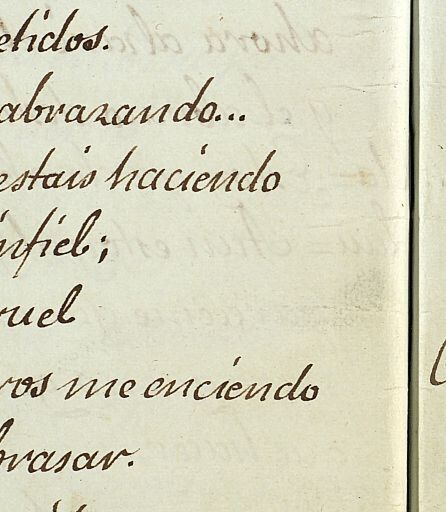 etidos.
abrazando...
estais haciendo
infiel;
ruel
ros me enciendo
brasar.